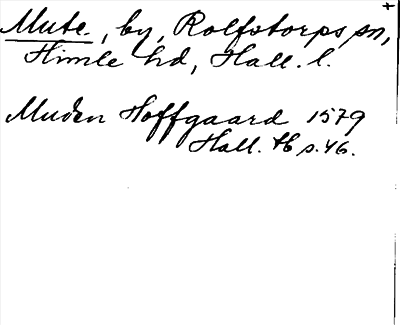 Mute., by, Rolfstorps sn, +
Himle hd, Hall. l.
Muden Hoffgaard 1579
Hall. tb s. 46.